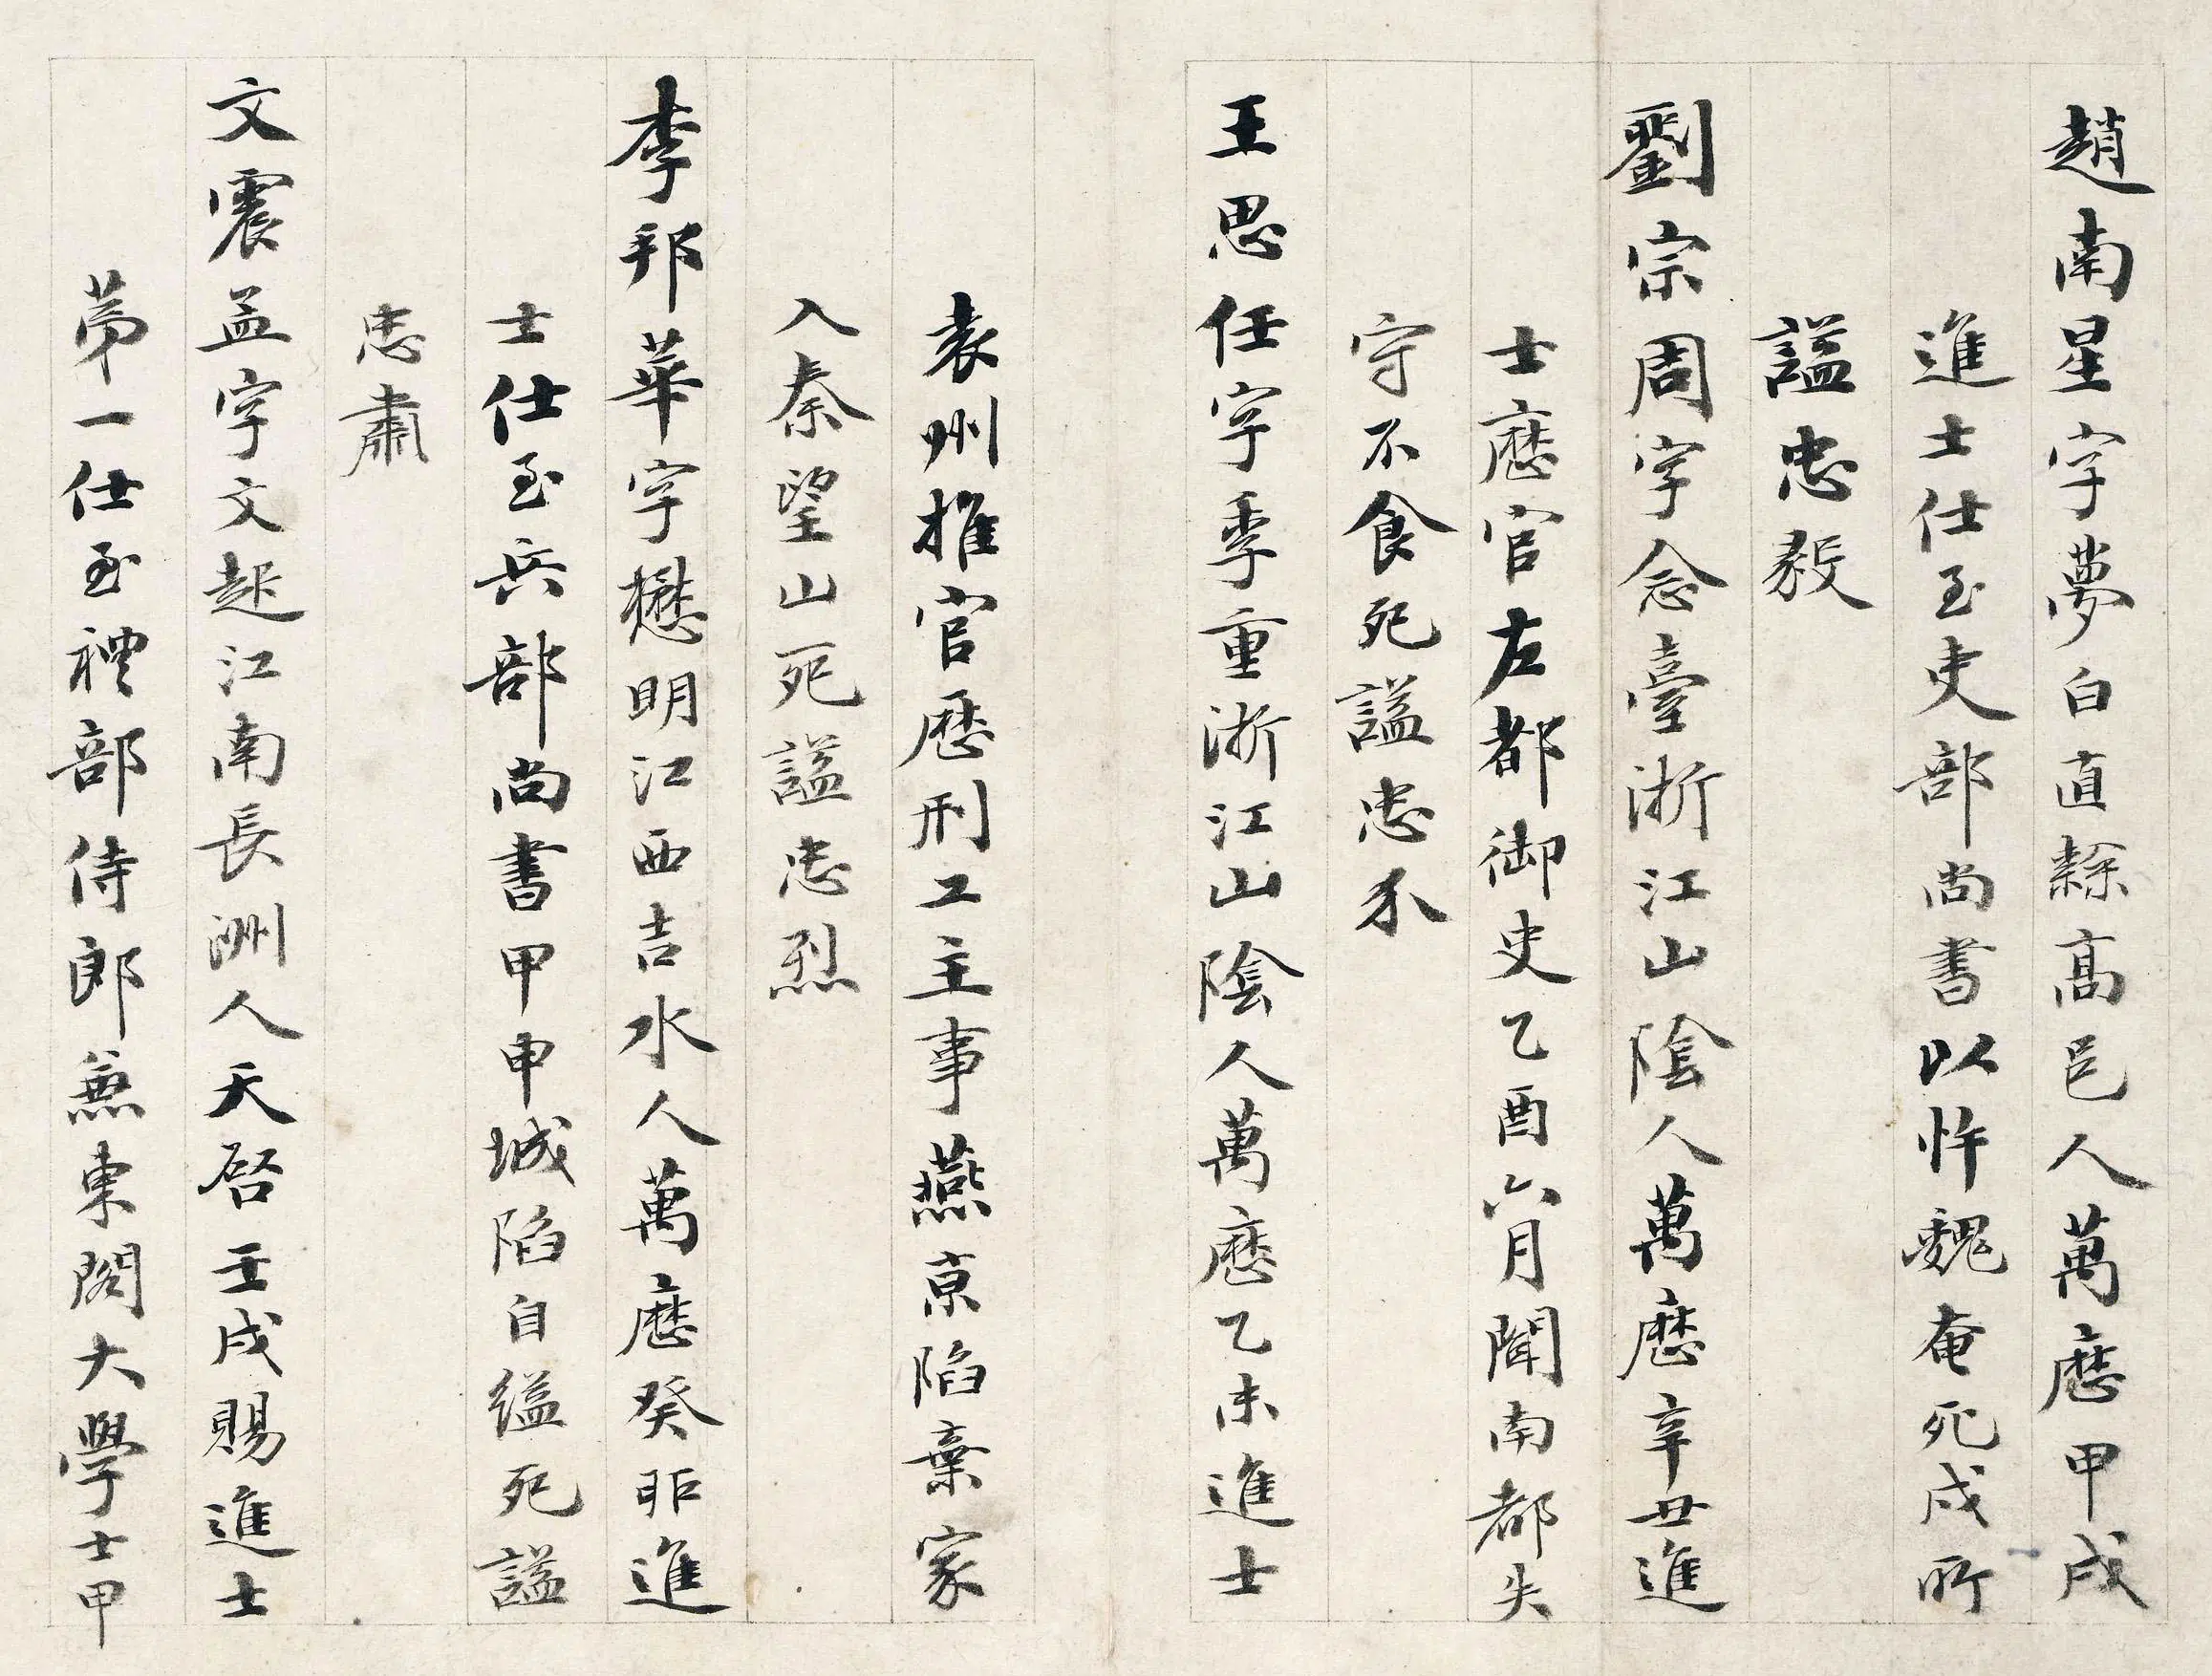 趙南星字夢白直隸高邑人萬曆甲戌
進士仕至吏部尚書以忤魏奄死戍所
諡忠毅
劉宗周字念臺浙江山陰人萬曆辛丑進
士歷官左都御史乙酉六月聞南都失
守不食死諡忠介
王思任字季重浙江山陰人萬曆乙未進士
袁州推官歷刑工主事燕京陷棄家
入秦望山死諡忠烈
李邦華字懋明江西吉水人萬曆癸卯進
士仕至兵部尚書甲申城陷自縊死諡
忠肅
文震孟字文起江南長洲人天啓壬戌賜進士
第一仕至禮部侍郎兼東閣大學士甲